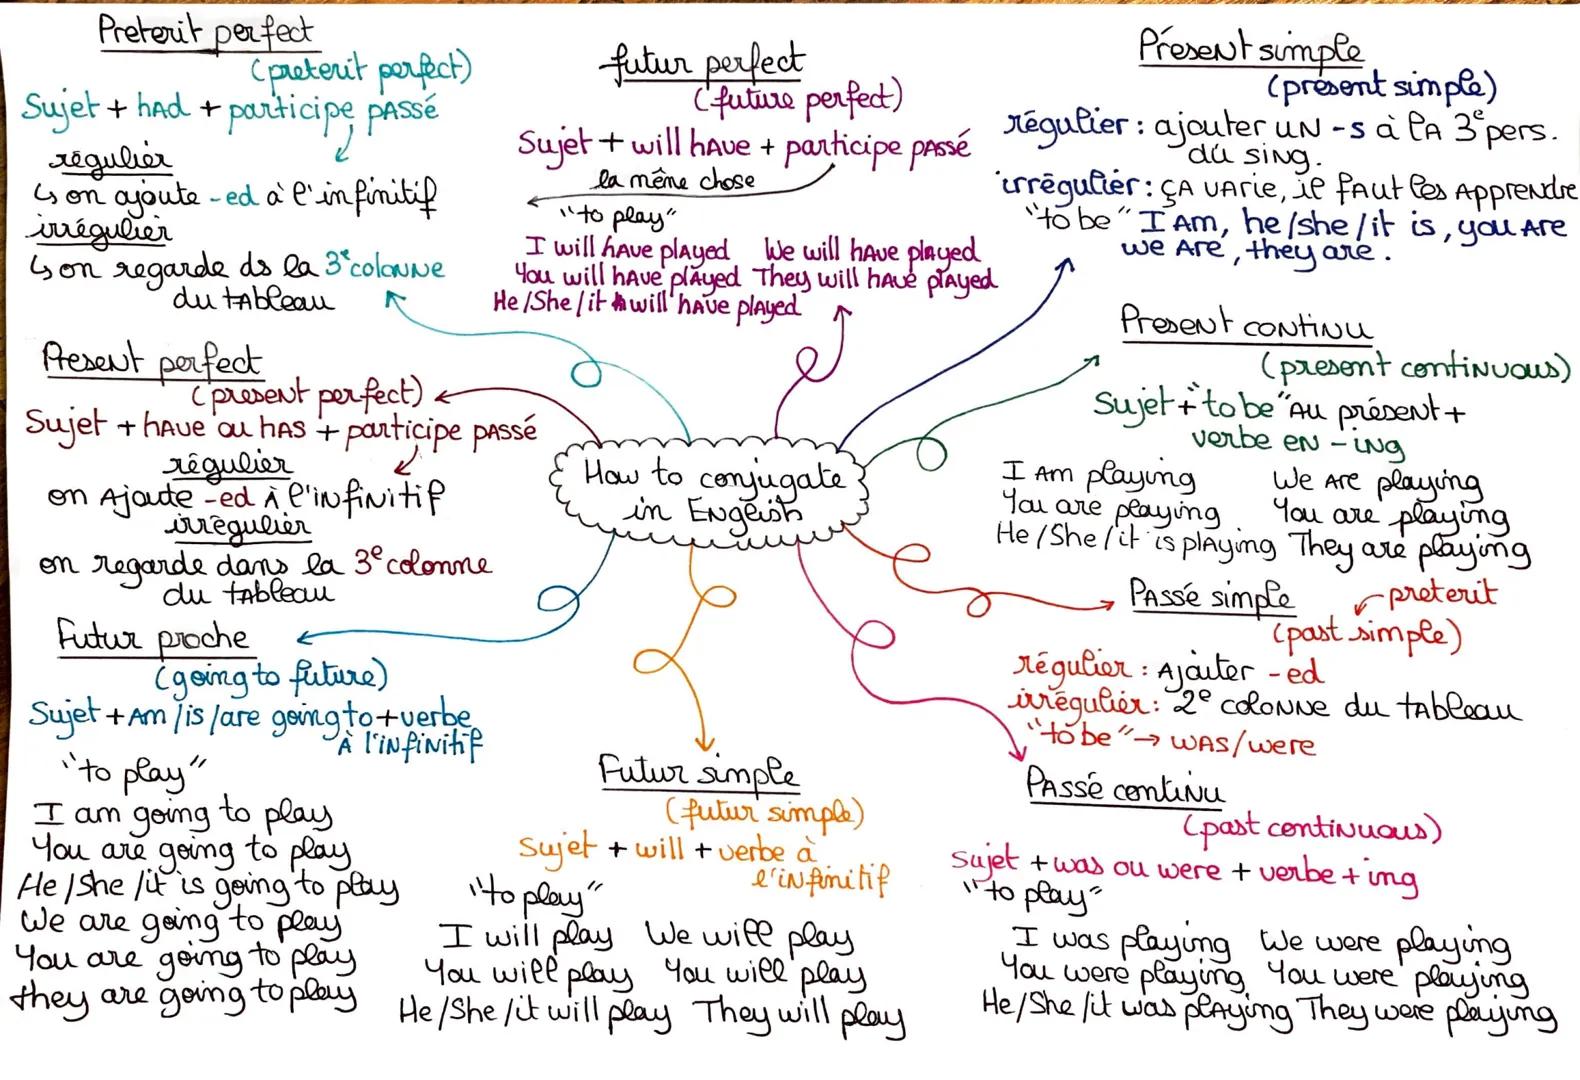 Preterit perfect
(preterit perfect)
Sujet + had + participe passé
régulier
↳ on ajoute -ed à l'infinitif
irrégulier
↳ on regarde ds la 3e colonne
du tableau
futur perfect
(future perfect)
Sujet + will have + participe passé
la même chose
"to play"
I will have played We will have played
You will have played They will have played
He/She/it will have played
Présent simple
(présent simple)
régulier : ajouter un -s à la 3e pers.
du sing.
irrégulier : ça varie, il faut les apprendre
"to be" I am, he/she/it is, you are
we are, they are.
Present perfect
(present perfect)
Sujet + have ou has + participe passé
régulier
on ajoute -ed à l'infinitif
irrégulier
on regarde dans la 3e colonne
du tableau
How to conjugate
in English
Present continu
(present continuous)
Sujet + "to be" au présent +
verbe en -ing
I am playing We are playing
You are playing You are playing
He/She/it is playing They are playing
Futur proche
(going to future)
Sujet + am/is/are going to + verbe
à l'infinitif
"to play"
I am going to play
You are going to play
He/She/it is going to play
We are going to play
You are going to play
they are going to play
Futur simple
(futur simple)
Sujet + will + verbe à
l'infinitif
"to play"
I will play We will play
You will play You will play
He/She/it will play They will play
Passé simple preterit
(past simple)
régulier : Ajouter -ed
irrégulier : 2e colonne du tableau
"to be" → was/were
Passé continu
(past continuous)
Sujet + was ou were + verbe + ing
"to play"
I was playing We were playing
You were playing You were playing
He/She/it was playing They were playing